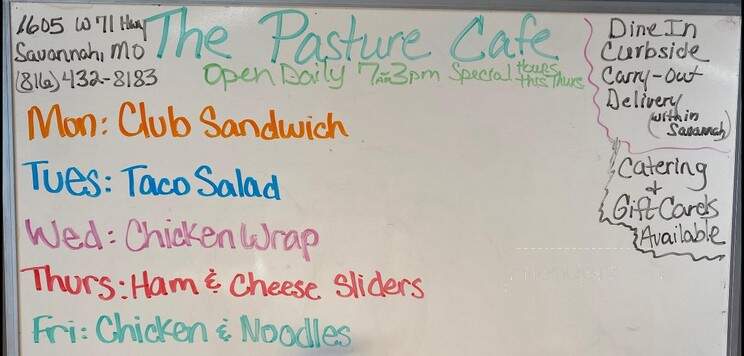 1605 W 71 Hwy
Savannah, MO
(816) 432-8183
The Pasture Cafe
Open Daily 7am-3pm Special Hours this Thurs
Dine In
Curbside
Carry-Out
Delivery
(within Savannah)
Catering
&
Gift Cards
Available
Mon: Club Sandwich
Tues: Taco Salad
Wed: Chicken Wrap
Thurs: Ham & Cheese Sliders
Fri: Chicken & Noodles